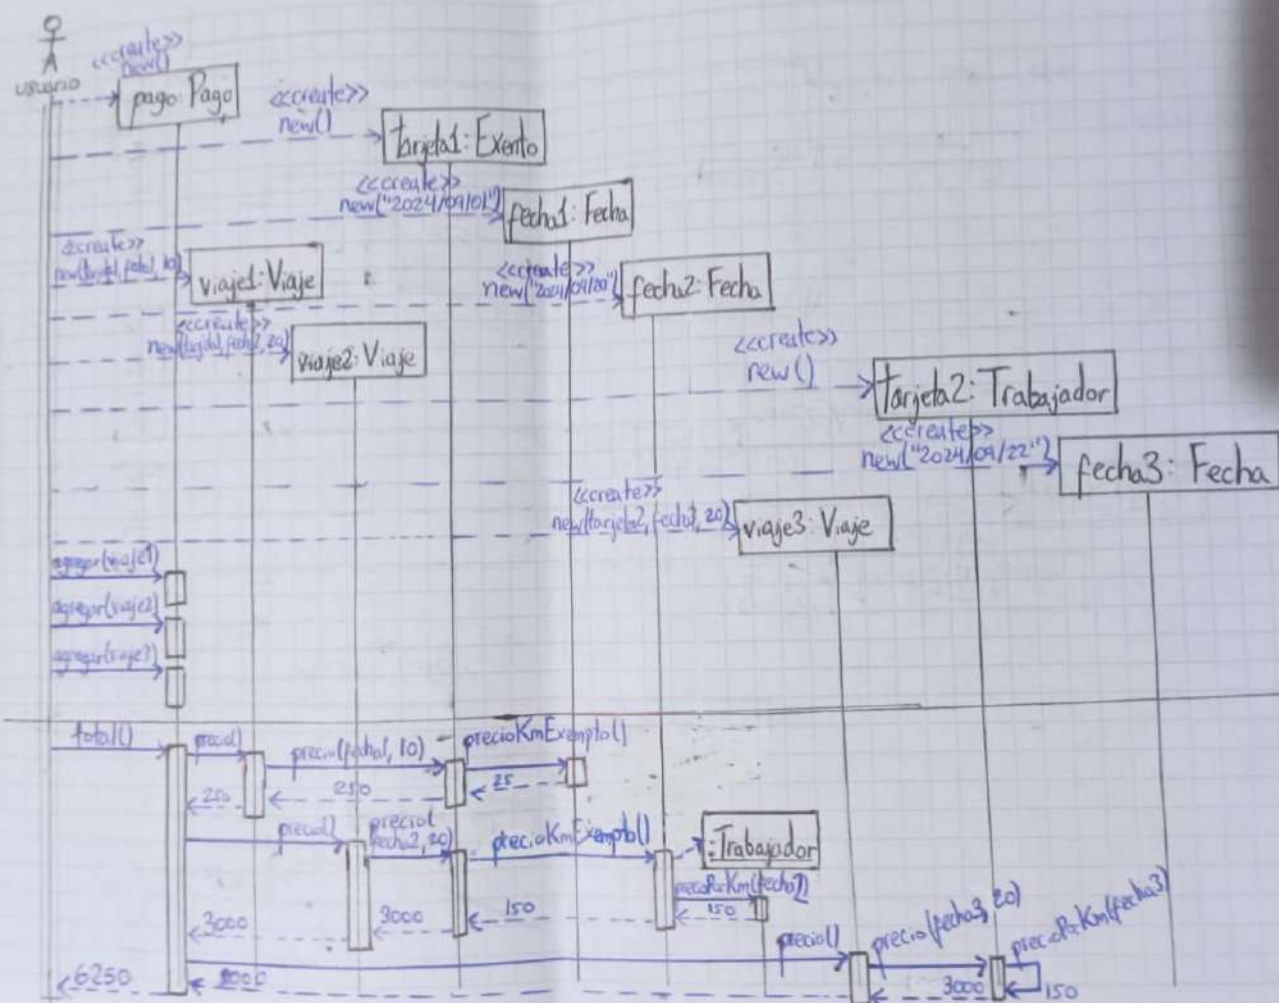 usuario
<<create>>
new()
pago: Pago
<<create>>
new()
tarjeta1: Exento
<<create>>
new("2024/09/01")
fecha1: Fecha
<<create>>
new(tarjeta1, fecha1, 10)
viaje1: Viaje
<<create>>
new("2024/09/20")
fecha2: Fecha
<<create>>
new(tarjeta1, fecha2, 20)
viaje2: Viaje
<<create>>
new()
tarjeta2: Trabajador
<<create>>
new("2024/09/22")
fecha3: Fecha
<<create>>
new(tarjeta2, fecha3, 20)
viaje3: Viaje
agregar(viaje1)
agregar(viaje2)
agregar(viaje3)
total()
precio()
precio(fecha1, 10)
precioKmExempto()
25
250
250
precio()
precio(
fecha2, 20)
precioKmExempto()
:Trabajador
precioPorKm(fecha2)
150
150
3000
3000
precio()
precio(fecha3, 20)
precioPorKm(fecha3)
150
3000
6250